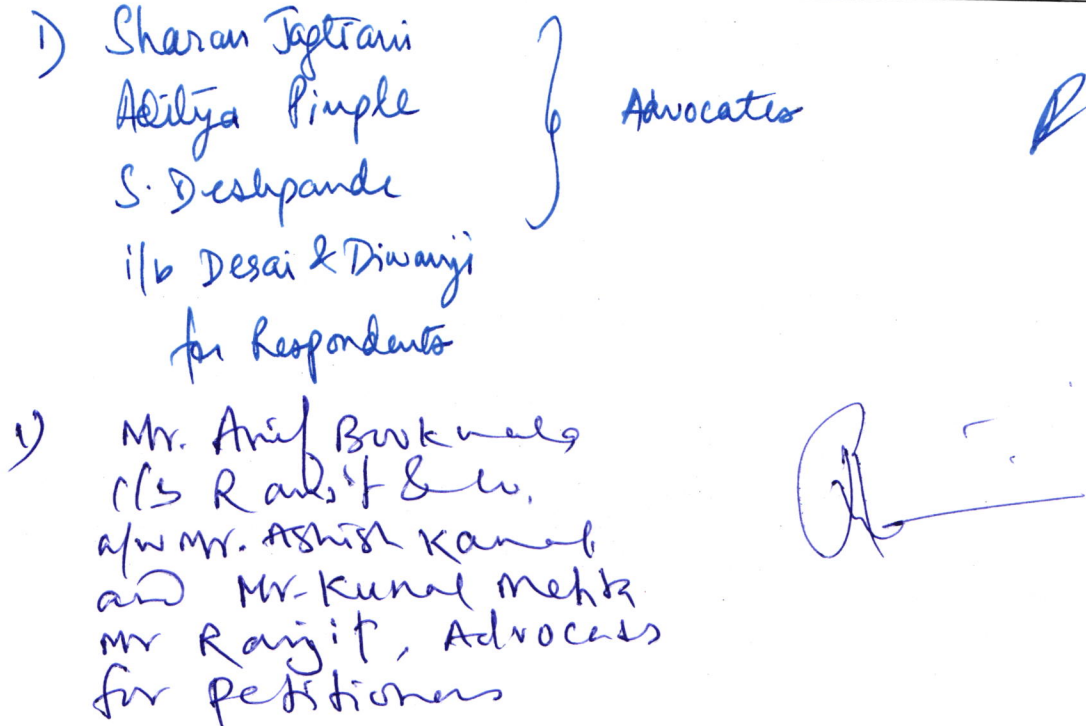 1) Sharan Jagtiani
Aditya Pimple } Advocates
S. Deshpande
i/b Desai & Diwanji
for Respondents
1) Mr. Arif Bookwala
i/b Ranjit & Co.
a/w Mr. Ashish Kamat
and Mr. Kunal Mehta
Mr Ranjit, Advocates
for petitioners